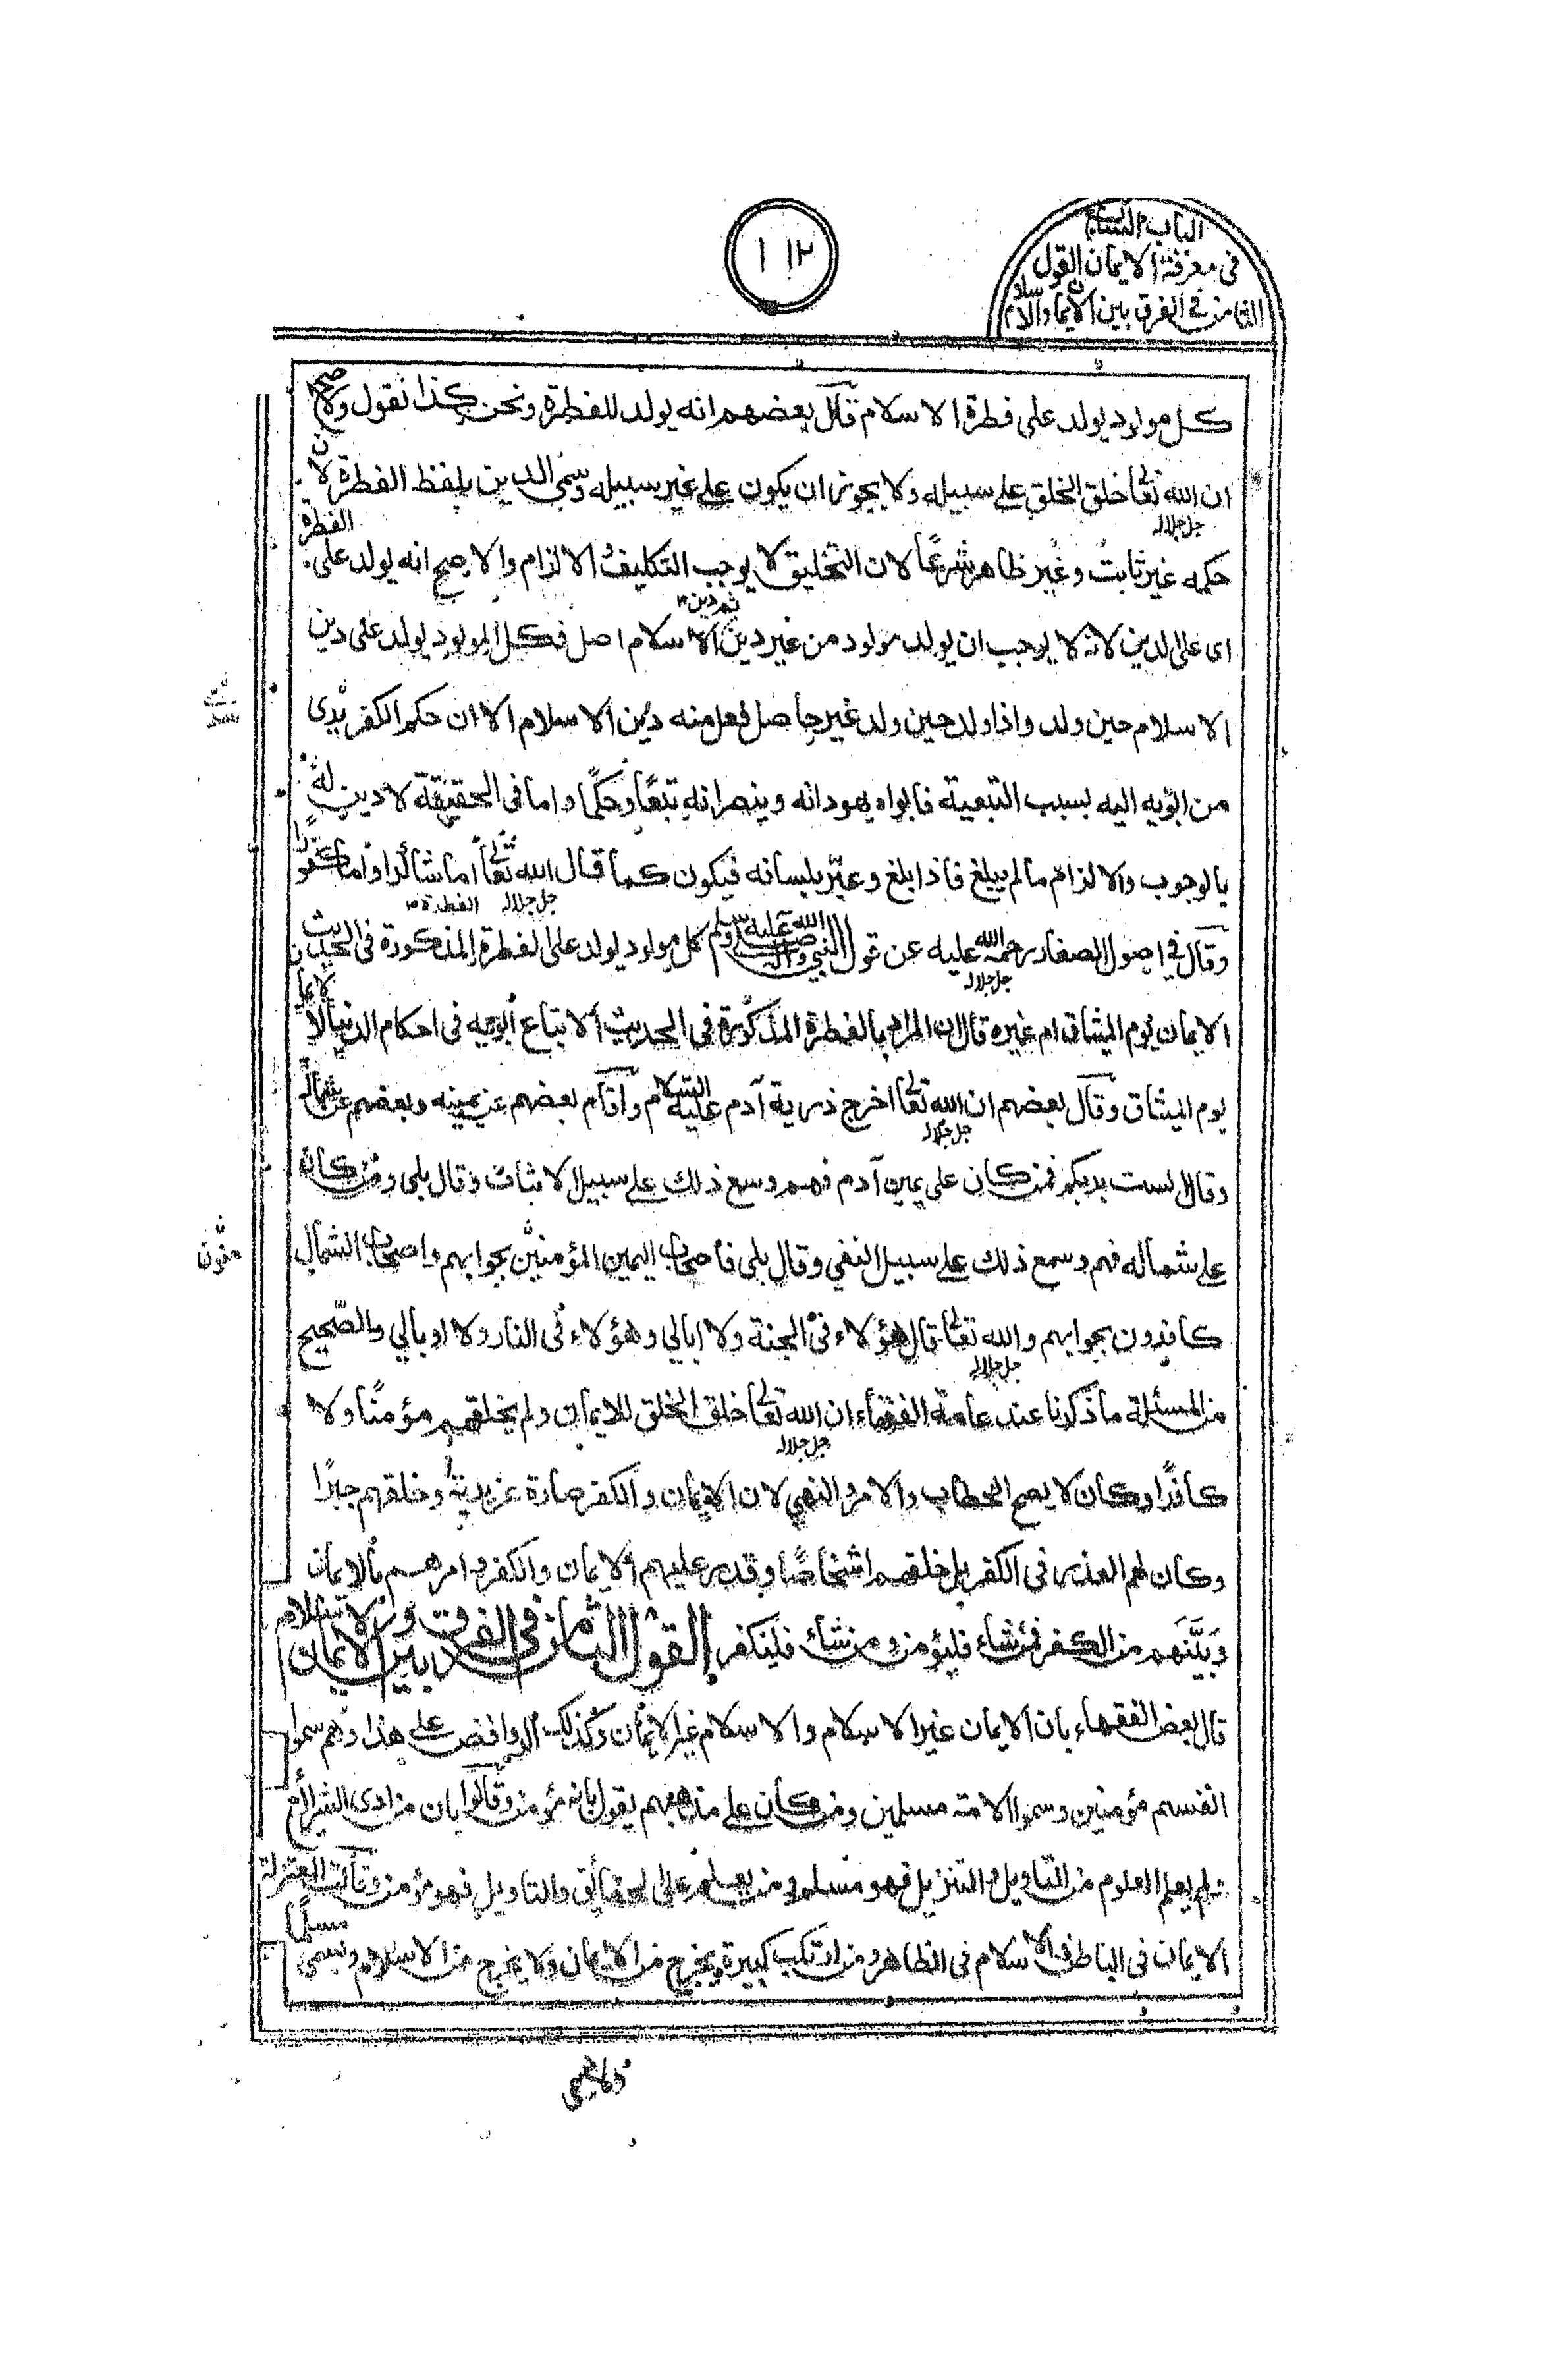 ١١٢
الباب السابع
في معرفة الايمان القول
الثامن في الفرق بين الايمان والاسلام
كل مولود يولد على فطرة الاسلام قال بعضهم انه يولد للفطرة ونحن كذا نقول ولا يصح
ان الله تعالى جل جلاله خلق الخلق على سبيله ولا يجوز ان يكون على غير سبيله وسمى الدين بلفظ الفطرة لان
حكمه غير ثابت وغير ظاهر شرعًا لان التخليق لا يوجب التكليف الالزام والاصح انه يولد على الفطرة
اى على الدين لانه لا يوجب ان يولد مولود من غير دين ثم دين الاسلام اصل فكل المولود يولد على دين
الاسلام حين ولد واذا ولد حين ولد غير حاصل فعل منه دين الاسلام الا ان حكم الكفر
من ابويه اليه بسبب التبعية فابواه يهودانه وينصرانه تبعًا وحكمًا واما فى الحقيقة لا دين له
بالوجوب والالزام مالم يبلغ فاذا بلغ وعبّر بلسانه فيكون كما قال الله تعالى جل جلاله اما شاكرا واما كفورًا
وقال في اصول الصفار رحمة الله عليه عن قول النبي صلى الله عليه وآله وسلم كل مولود يولد على الفطرة المذكورة فى الحديث
الايمان يوم الميثاق ام غيره قال ان المراد بالفطرة المذكورة فى الحديث الاتباع ابويه فى احكام الدنيا لا الايمان
يوم الميثاق وقال بعضهم ان الله تعالى جل جلاله اخرج ذرية آدم عليه السلام واقام بعضهم عن يمينه وبعضهم عن شماله
وقال الست بربكم فمن كان على يمين آدم فهم وسمع ذلك على سبيل الاثبات وقال بلى ومن كان
على شماله فهم وسمع ذلك على سبيل النفي وقال بلى فاصحاب اليمين المؤمنين بجوابهم واصحاب الشمال
منون
كافرون بجوابهم والله تعالى جل جلاله قال هؤلاء فى الجنة ولا ابالي وهؤلاء فى النار ولا ابالي والصحيح
من المسئلة ما ذكرنا عند عامة الفقهاء ان الله تعالى جل جلاله خلق الخلق للايمان ولم يخلقهم مؤمنًا ولا
كافرًا وكان لا يصح الخطاب والامر والنهي لان الايمان والكفر صارة غريزية وخلقهم جبرًا
وكان لهم العذر فى الكفر بل خلقهم اشخاصًا وقدر عليهم الايمان والكفر وامرهم بالايمان
وبيّنهم من الكفر فمن شاء فليؤمن ومن شاء فليكفر القول الثامن في الفرق بين الايمان والاسلام
قال بعض الفقهاء بان الايمان غير الاسلام والاسلام غير الايمان وكذلك الروافض على هذا وهم سموا
انفسهم مؤمنين وسموا الامة مسلمين ومن كان على مذاهبهم يقول بانه مؤمن وقالوا بان من ادى الشرائع
ثم لم يعلم العلوم من التاويل والتنزيل فهو مسلم ومن يعلم على الحقائق والتاويل فهو مؤمن وقالت المعتزلة
الايمان فى الباطن والاسلام فى الظاهر ومن ارتكب كبيرة يخرج من الايمان ولا يخرج من الاسلام ويسمى مسلمًا